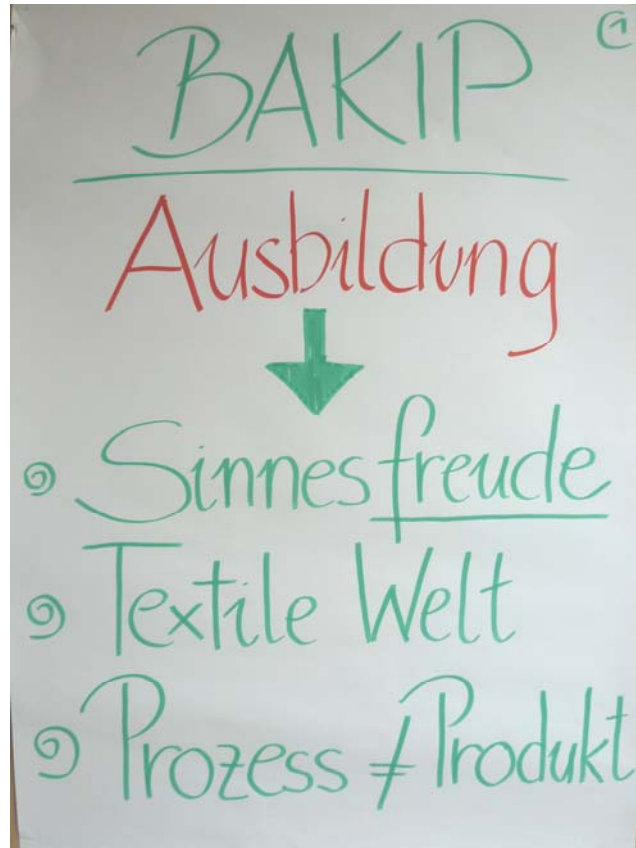 1
BAKIP
Ausbildung
Sinnesfreude
Textile Welt
Prozess ≠ Produkt